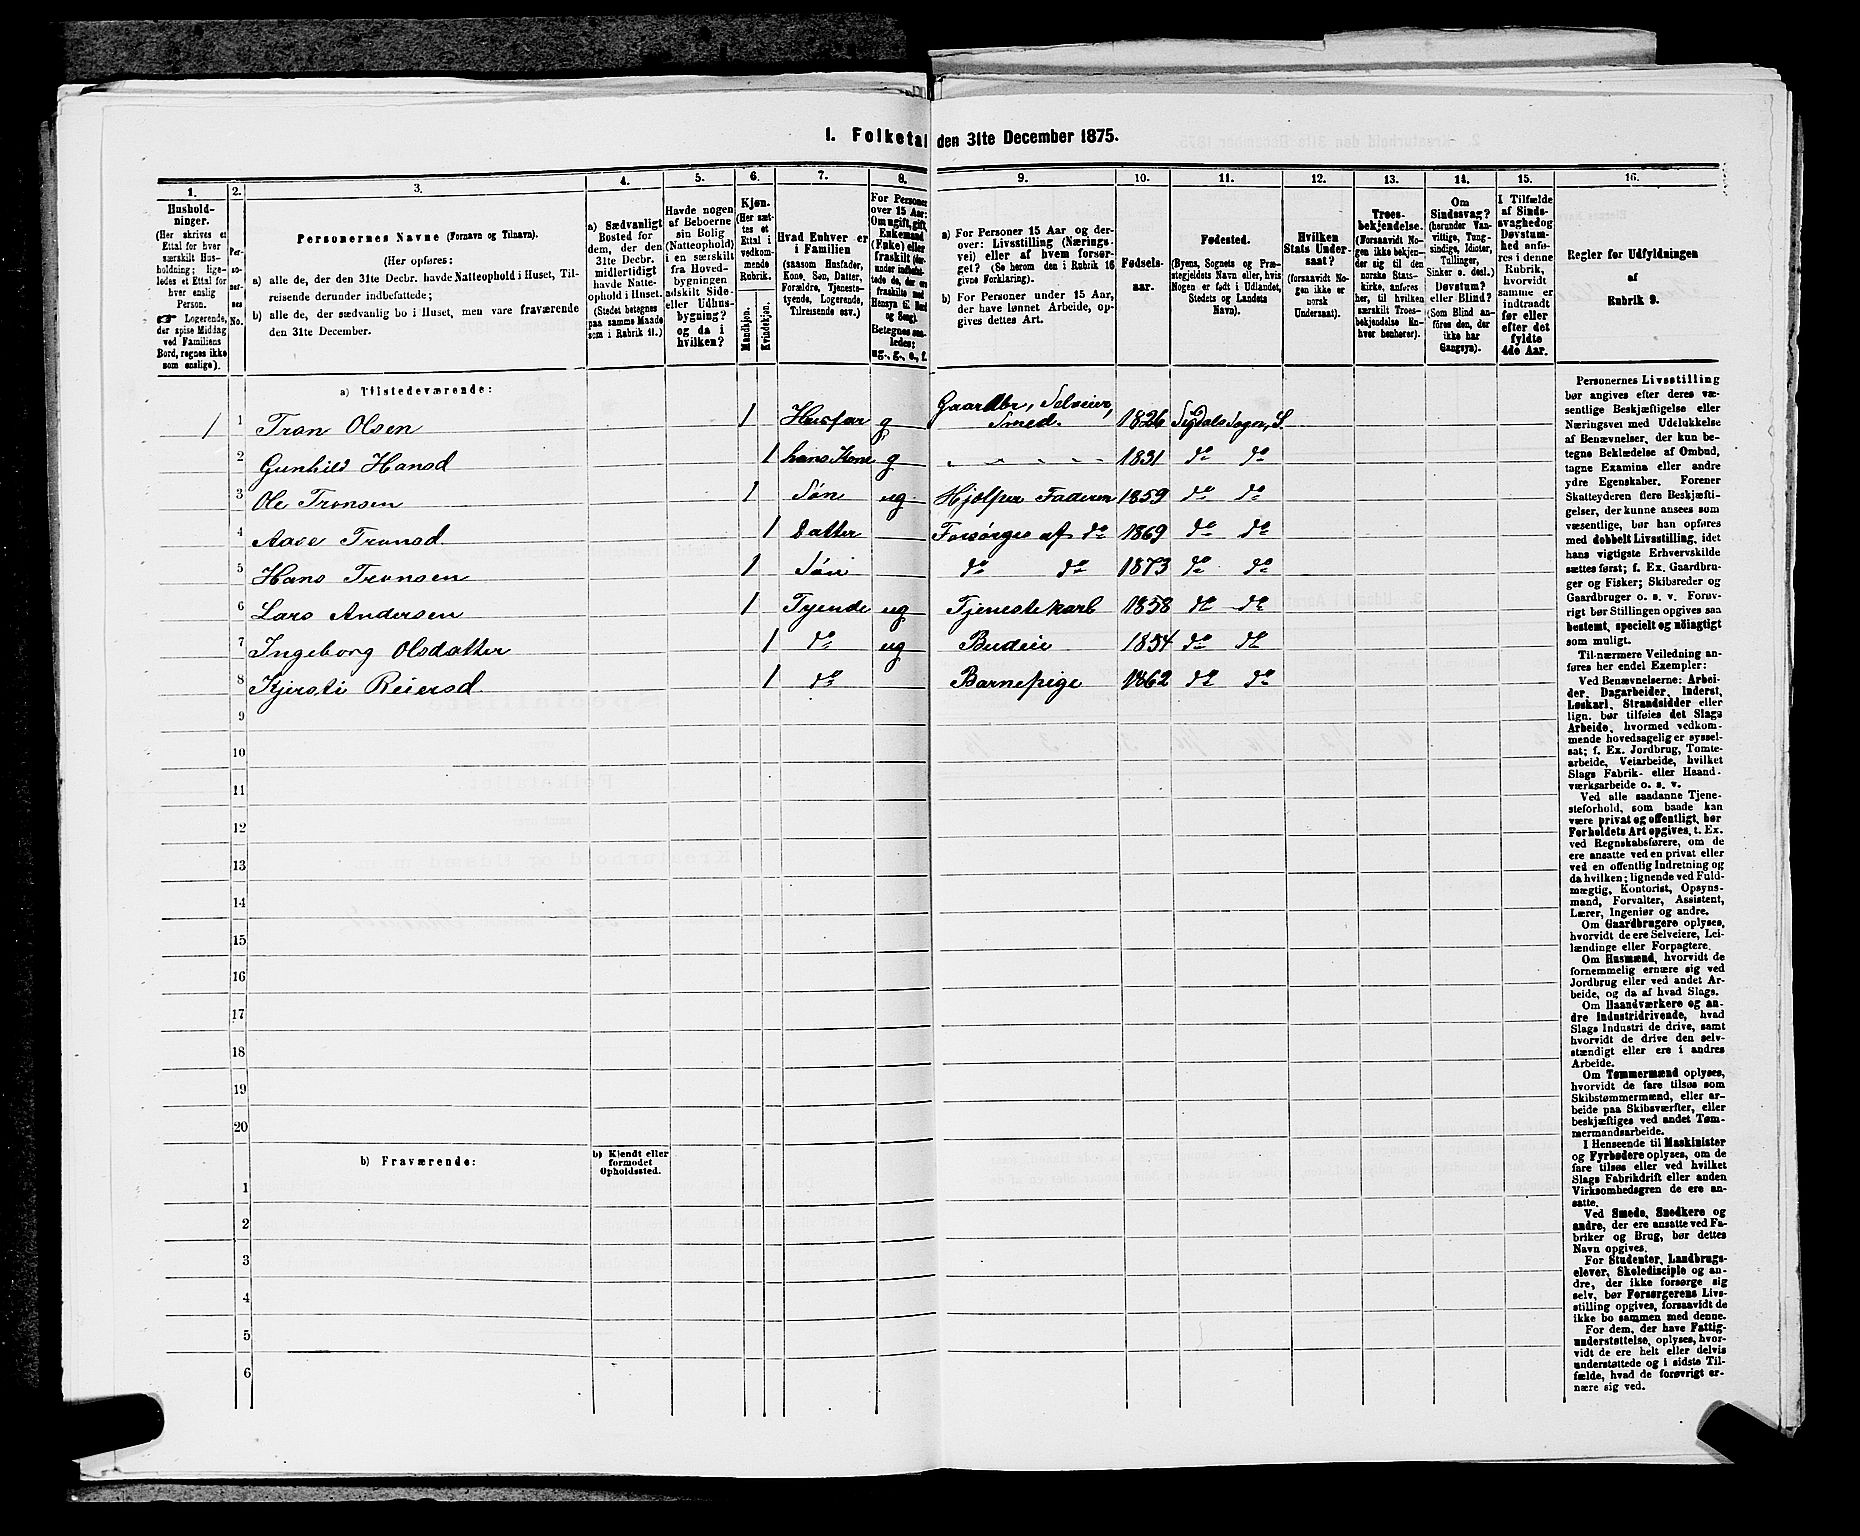 1. Folketal den 31te December 1875.
1. 2. 3. 4. 5. 6. 7. 8. 9. 10. 11. 12. 13. 14. 15. 16.
Hushold-
ninger.
(Her skrives et
Ettal for hver
særskilt Hus-
holdning; lige-
ledes et Ettal for
hver enslig
Person.
☞ Logerende,
der spise Middag
ved Familiens
Bord, regnes ikke
som enslige).
Per-
so-
ner-
nes
No.
Personernes Navne (Fornavn og Tilnavn).
(Her opføres:
a) alle de, der den 31te Decbr. havde Natteophold i Huset, Til-
reisende derunder indbefattede;
b) alle de, der sædvanlig bo i Huset, men vare fraværende
den 31te December.
a) Sædvanligt
Bosted for
dem, der den
31te Decbr.
midlertidigt
havde Natte-
ophold i Huset.
(Stedet betegnes
paa samme Maade
som i Rubrik 11.)
Havde nogen
af Beboerne
sin Bolig
(Natteophold)
i en særskilt
fra Hoved-
bygningen
adskilt Side-
eller Udhus-
bygning?
og da i
hvilken?
Kjøn.
(Her sæt-
tes et
Ettal i
vedkom-
mende
Rubrik.
Mandkjøn.
Kvindekjøn.
Hvad Enhver er
i Familien
(saasom Husfader,
Kone, Søn, Datter,
Forældre, Tjeneste-
tyende, Logerende,
Tilreisende osv.)
For Personer
over 15 Aar:
Om ugift, gift,
Enkemand
(Enke) eller
fraskilt
Betegnes saa-
ledes:
ug., g., e., f.
a) For Personer 15 Aar og der-
over: Livsstilling (Nærings-
vei) eller af hvem forsør-
get? (Se herom den i Rubrik 16
givne Forklaring).
b) For Personer under 15 Aar,
der have lønnet Arbeide, op-
gives dettes Art.
Fødsels-
aar.
Fødested.
(Byens, Sognets og Præ-
stegjeldets Navn eller, hvis
Nogen er født i Udlandet,
Stedets og Landets
Navn).
Hvilken
Stats Under-
saat?
(forsaavidt No-
gen ikke er
norsk
Undersaat).
Troes-
bekjendelse.
(Forsaavidt No-
gen ikke bekjen-
der sig til den
norske Stats-
kirke, anføres
her, til hvilken
særskilt Troes-
bekjendelse En-
hver henhører).
Om
Sindssvag?
(herunder Van-
vittige, Tung-
sindige, Idioter,
Tullinger,
Sinker o. desl.)
Døvstum?
eller Blind?
(Som Blind an-
føres den, der
ikke har
Gangsyn).
I Tilfælde
af Sinds-
svaghed og
Døvstum-
hed anfø-
res i denne
Rubrik,
hvorvidt
samme er
indtraadt
før eller
efter det
fyldte
4de Aar.
Regler for Udfyldningen
af
Rubrik 9.
a) Tilstedeværende:
1 1 Tron Olsen 1 Husfar g Gaardbr, Selveier, Smed. 1826 Sigdals Sogn, S.
2 Gunhild Hansd 1 hans Kone g 1831 do do
3 Ole Tronsen 1 Søn ug Hjelper Faderen 1859 do do
4 Aase Tronsd 1 Datter Forsørges af do 1869 do do
5 Hans Tronsen 1 Søn do do 1873 do do
6 Lars Andersen 1 Tyende ug Tjenestekarl 1858 do do
7 Ingeborg Olsdatter 1 do ug Budeie 1854 do do
8 Kjersti Reiersd 1 do Barnepige 1862 do do
9
10
11
12
13
14
15
16
17
18
19
20
b) Fraværende:
b) Kjendt eller
formodet
Opholdssted.
1
2
3
4
5
6
Personernes Livsstilling
bør angives efter deres væ-
sentlige Beskjæftigelse eller
Næringsvei med Udelukkelse
af Benævnelser, der kun be-
tegne Beklædelse af Ombud,
tagne Examina eller andre
ydre Egenskaber. Forener
Skatteyderen flere Beskjæfti-
gelser, der kunne ansees som
væsentlige, bør han opføres
med dobbelt Livsstilling, idet
hans vigtigste Erhvervskilde
sættes først; f. Ex. Gaardbru-
ger og Fisker; Skibsreder og
Gaardbruger o. s. v. Forøv-
rigt bør Stillingen opgives saa
bestemt, specielt og nøiagtigt
som muligt.
Til nærmere Veiledning an-
føres her endel Exempler:
Ved Benævnelserne: Arbei-
der, Dagarbeider, Inderst,
Løskarl, Strandsidder eller
lign. bør tilføies det Slags
Arbeide, hvormed vedkom-
mende hovedsagelig er syssel-
sat; f. Ex. Jordbrug, Tomte-
arbeide, Veiarbeide, hvilket
Slags Fabrik- eller Haand-
værksarbeide o. s. v.
Ved alle saadanne Tjene-
steforhold, som baade kan
være privat og offentligt, bør
Forholdets Art opgives, t. Ex.
ved Regnskabsførere, om de
ere ansatte ved en privat eller
ved en offentlig Indretning og
da hvilken; lignende ved Fuld-
mægtig, Kontorist, Opsyns-
mand, Forvalter, Assistent,
Lærer, Ingeniør og andre.
Om Gaardbrugere oplyses,
hvorvidt de ere Selveiere, Lei-
lændinge eller Forpagtere.
Om Husmænd, hvorvidt de
fornemmelig ernære sig ved
Jordbrug eller ved andet Ar-
beide, og da af hvad Slags.
Om Haandværkere og an-
dre Industridrivende, hvad
Slags Industri de drive, samt
hvorvidt de drive den selv-
stændigt eller ere i andres
Arbeide.
Om Tømmermænd oplyses,
hvorvidt de fare tilsøs som
Skibstømmermænd, eller ar-
beide paa Skibsværfter, eller
beskjæftiges ved andet Tøm-
mermandsarbeide.
I Henseende til Maskinister
og Fyrbødere oplyses, om de
fare tilsøs eller ved hvilket
Slags Fabrikdrift eller anden
Virksomhedsgren de ere an-
satte.
Ved Smede, Snedkere og
andre, der ere ansatte ved Fa-
briker og Brug, bør dettes
Navn opgives.
For Studenter, Landbrugs-
elever, Skoledisciple og an-
dre, der ikke forsørge sig
selv, bør Forsørgerens Livs-
stilling opgives, forsaavidt de
ikke bo sammen med denne.
For dem, der have Fattig-
understøttelse, oplyses, hvor-
vidt de ere helt eller delvis
understøttede og i sidste Til-
fælde, hvad de forøvrigt er-
nære sig ved.